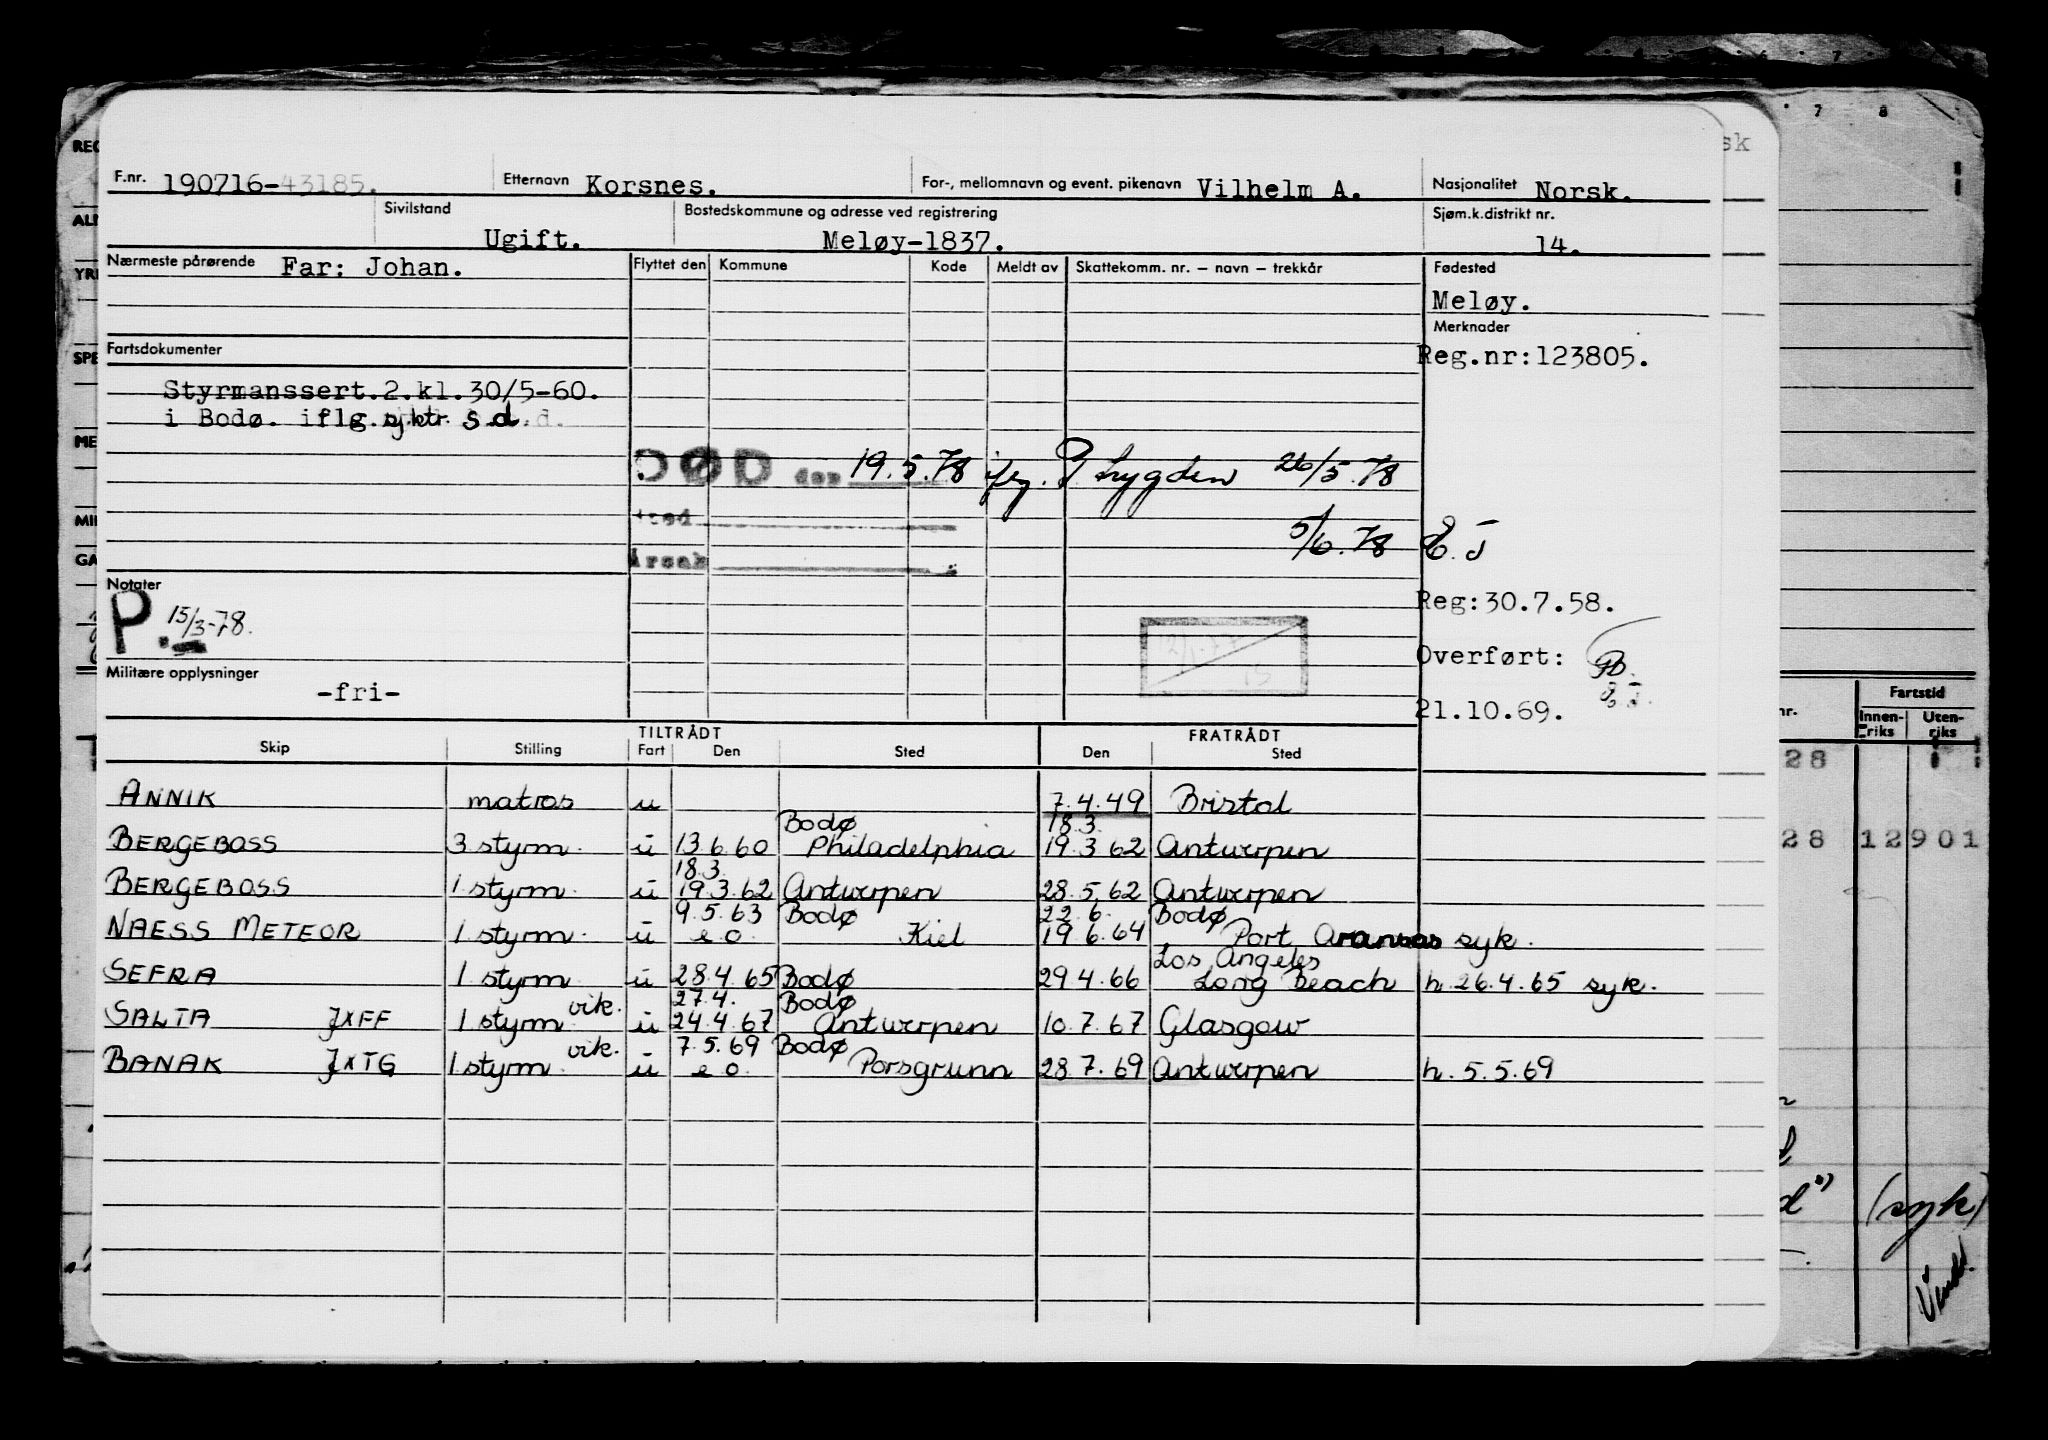 F.nr. 190716-43185. Etternavn Korsnes. For-, mellomnavn og event. pikenavn Vilhelm A. Nasjonalitet Norsk.
Sivilstand Ugift. Bostedskommune og adresse ved registrering Meløy-1837. Sjøm.k.distrikt nr. 14.
Nærmeste pårørende Far: Johan. Flyttet den Kommune Kode Meldt av Skattekomm. nr. – navn – trekkår Fødested
Meløy.
Merknader
Reg.nr:123805.
Fartsdokumenter
Styrmanssert.2.kl.30/5-60.
i Bodø. iflg. sjktr. s.d.
DØD den 19.5.78 26/5.78
Sted
Årsak
5/6.78
Notater
P. 15/3-78.
Reg:30.7.58.
Overført:
21.10.69.
Militære opplysninger
-fri-
TILTRÅDT FRATRÅDT
Skip Stilling Fart Den Sted Den Sted
ANNIK matros u 7.4.49 Bristol
Bodø 18.3.
BERGEBOSS 3 styrm. u 13.6.60 Philadelphia 19.3.62 Antwerpen
18.3.
BERGEBOSS 1 styrm. u 19.3.62 Antwerpen 28.5.62 Antwerpen
9.5.63 Bodø 22.6. Bodø
NAESS METEOR 1 styrm. u e.o. Kiel 19.6.64 Port Aransas syk.
Los Angeles
SEFRA 1 styrm u 28.4.65 Bodø 29.4.66 Long Beach h. 26.4.65 syk.
vik. 27.4. Bodø
SALTA JXFF 1 styrm u 24.4.67 Antwerpen 10.7.67 Glasgow
vik. 7.5.69 Bodø
BANAK JXTG 1 styrm. u e.o. Porsgrunn 28.7.69 Antwerpen h. 5.5.69
7 8
sk
REG
YR
SPE
ME
MI
GA
nr. Fartstid
Innenriks Utenriks
28
28 12901
(syk)